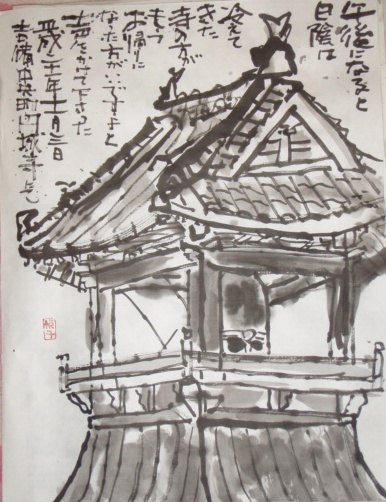 午後になると
日陰は
冷えて
きた
寺の方が
もう
お帰りに
なった方がいいですよと
声をかけて下さった
年十一月三日
吉備中央町円城寺